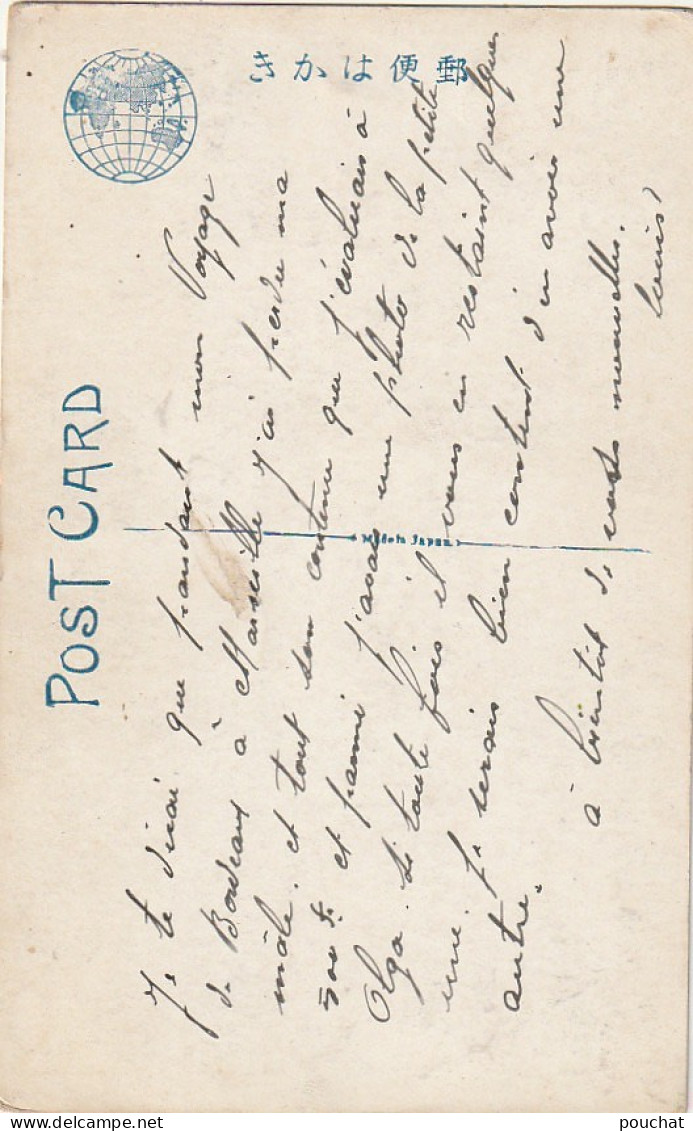 郵便はかき
POST CARD
Made in Japan
Je te dirai que pendant mon Voyage
de Bordeaux à Marseille j'ai perdu ma
mâle. et tout son contenu que j'évaluais à
500 f. et parmi j'avais une photo de la petite
Olga. Si toute fois il vous en restaint quelques
une. Je serais bien content d'en avoir une
autre.
à bientôt de vous nouvelles.
Louis
pouchat